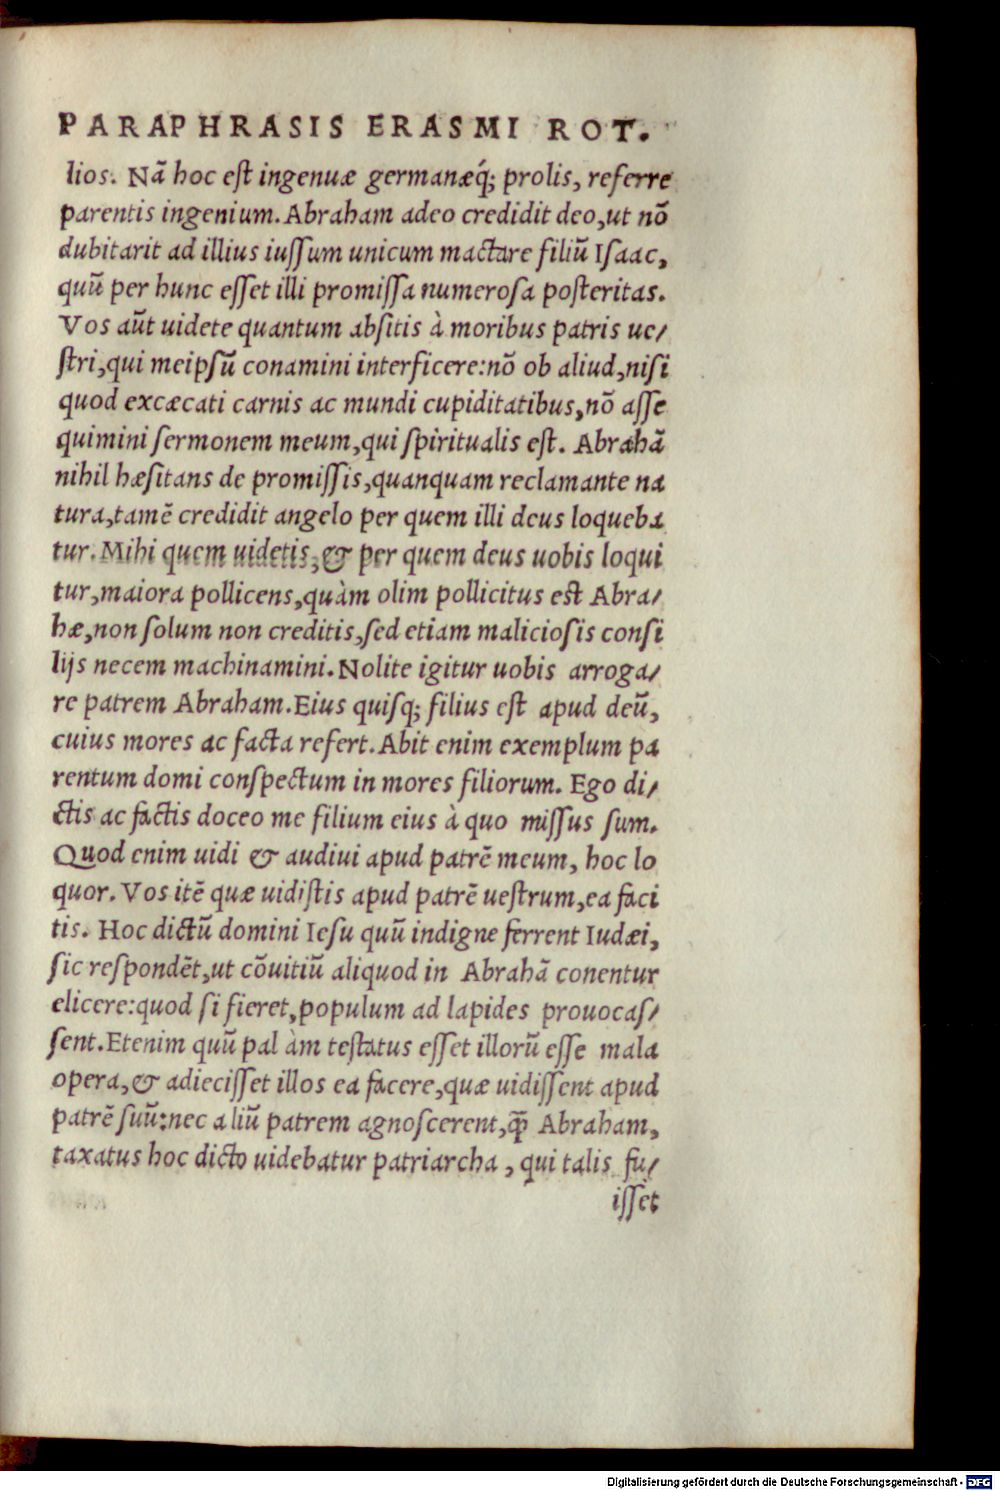 PARAPHRASIS ERASMI ROT.
lios. Nã hoc est ingenuæ germanæq́; prolis, referre
parentis ingenium. Abraham adeo credidit deo, ut nõ
dubitarit ad illius iussum unicum mactare filiũ Isaac,
quũ per hunc esset illi promissa numerosa posteritas.
Vos aũt uidete quantum absitis à moribus patris ue/
stri, qui meipsũ conamini interficere: nõ ob aliud, nisi
quod excæcati carnis ac mundi cupiditatibus, nõ asse
quimini sermonem meum, qui spiritualis est. Abrahã
nihil hæsitans de promissis, quanquam reclamante na
tura, tamẽ credidit angelo per quem illi deus loqueba
tur. Mihi quem uidetis, & per quem deus uobis loqui
tur, maiora pollicens, quàm olim pollicitus est Abra/
hæ, non solum non creditis, sed etiam maliciosis consi
lijs necem machinamini. Nolite igitur uobis arroga/
re patrem Abraham. Eius quisq; filius est apud deũ,
cuius mores ac facta refert. Abit enim exemplum pa
rentum domi conspectum in mores filiorum. Ego di/
ctis ac factis doceo me filium eius à quo missus sum.
Quod enim uidi & audiui apud patrẽ meum, hoc lo
quor. Vos itẽ quæ uidistis apud patrẽ uestrum, ea faci
tis. Hoc dictũ domini Iesu quũ indigne ferrent Iudæi,
sic respondẽt, ut cõuitiũ aliquod in Abrahã conentur
elicere: quod si fieret, populum ad lapides prouocas/
sent. Etenim quũ pal àm testatus esset illorũ esse mala
opera, & adiecisset illos ea facere, quæ uidissent apud
patrẽ suũ: nec aliũ patrem agnoscerent, q̃ Abraham,
taxatus hoc dicto uidebatur patriarcha, qui talis fu/
isset
Digitalisierung gefördert durch die Deutsche Forschungsgemeinschaft - DFG